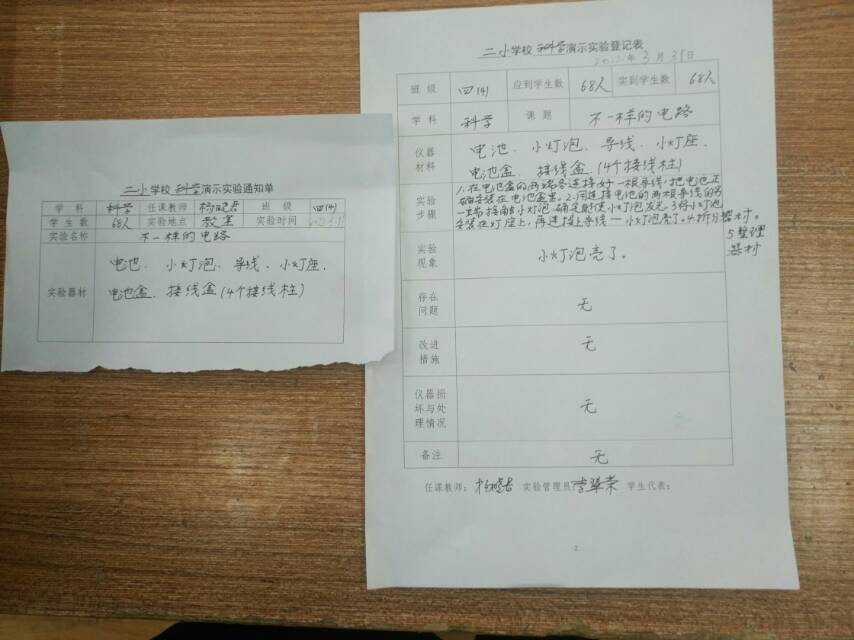 二小学校科学演示实验通知单
学科 科学 任课教师 杨晓君 班级 四(4)
学生数 68人 实验地点 教室 实验时间
实验名称 不一样的电路
实验器材 电池、小灯泡、导线、小灯座、
电池盒、接线盒(4个接线柱)
二小学校科学演示实验登记表
年3月31日
班级 四(4) 应到学生数 68人 实到学生数 68人
学科 科学 课题 不一样的电路
仪器材料 电池、小灯泡、导线、小灯座、
电池盒、接线盒(4个接线柱)
实验步骤 1.在电池盒的两端各连接好一根导线,把电池正
确安装在电池盒里。2.用连接电池的两根导线的另
一端接触小灯泡,确定能使小灯泡发光。3.将小灯泡
安装在灯座上,再连接上导线——小灯泡亮了。4.拆分器材。
5.整理
器材
实验现象 小灯泡亮了。
存在问题 无
改进措施 无
仪器损坏与处理情况 无
备注 无
任课教师:杨晓君 实验管理员:李翠荣 学生代表:
2